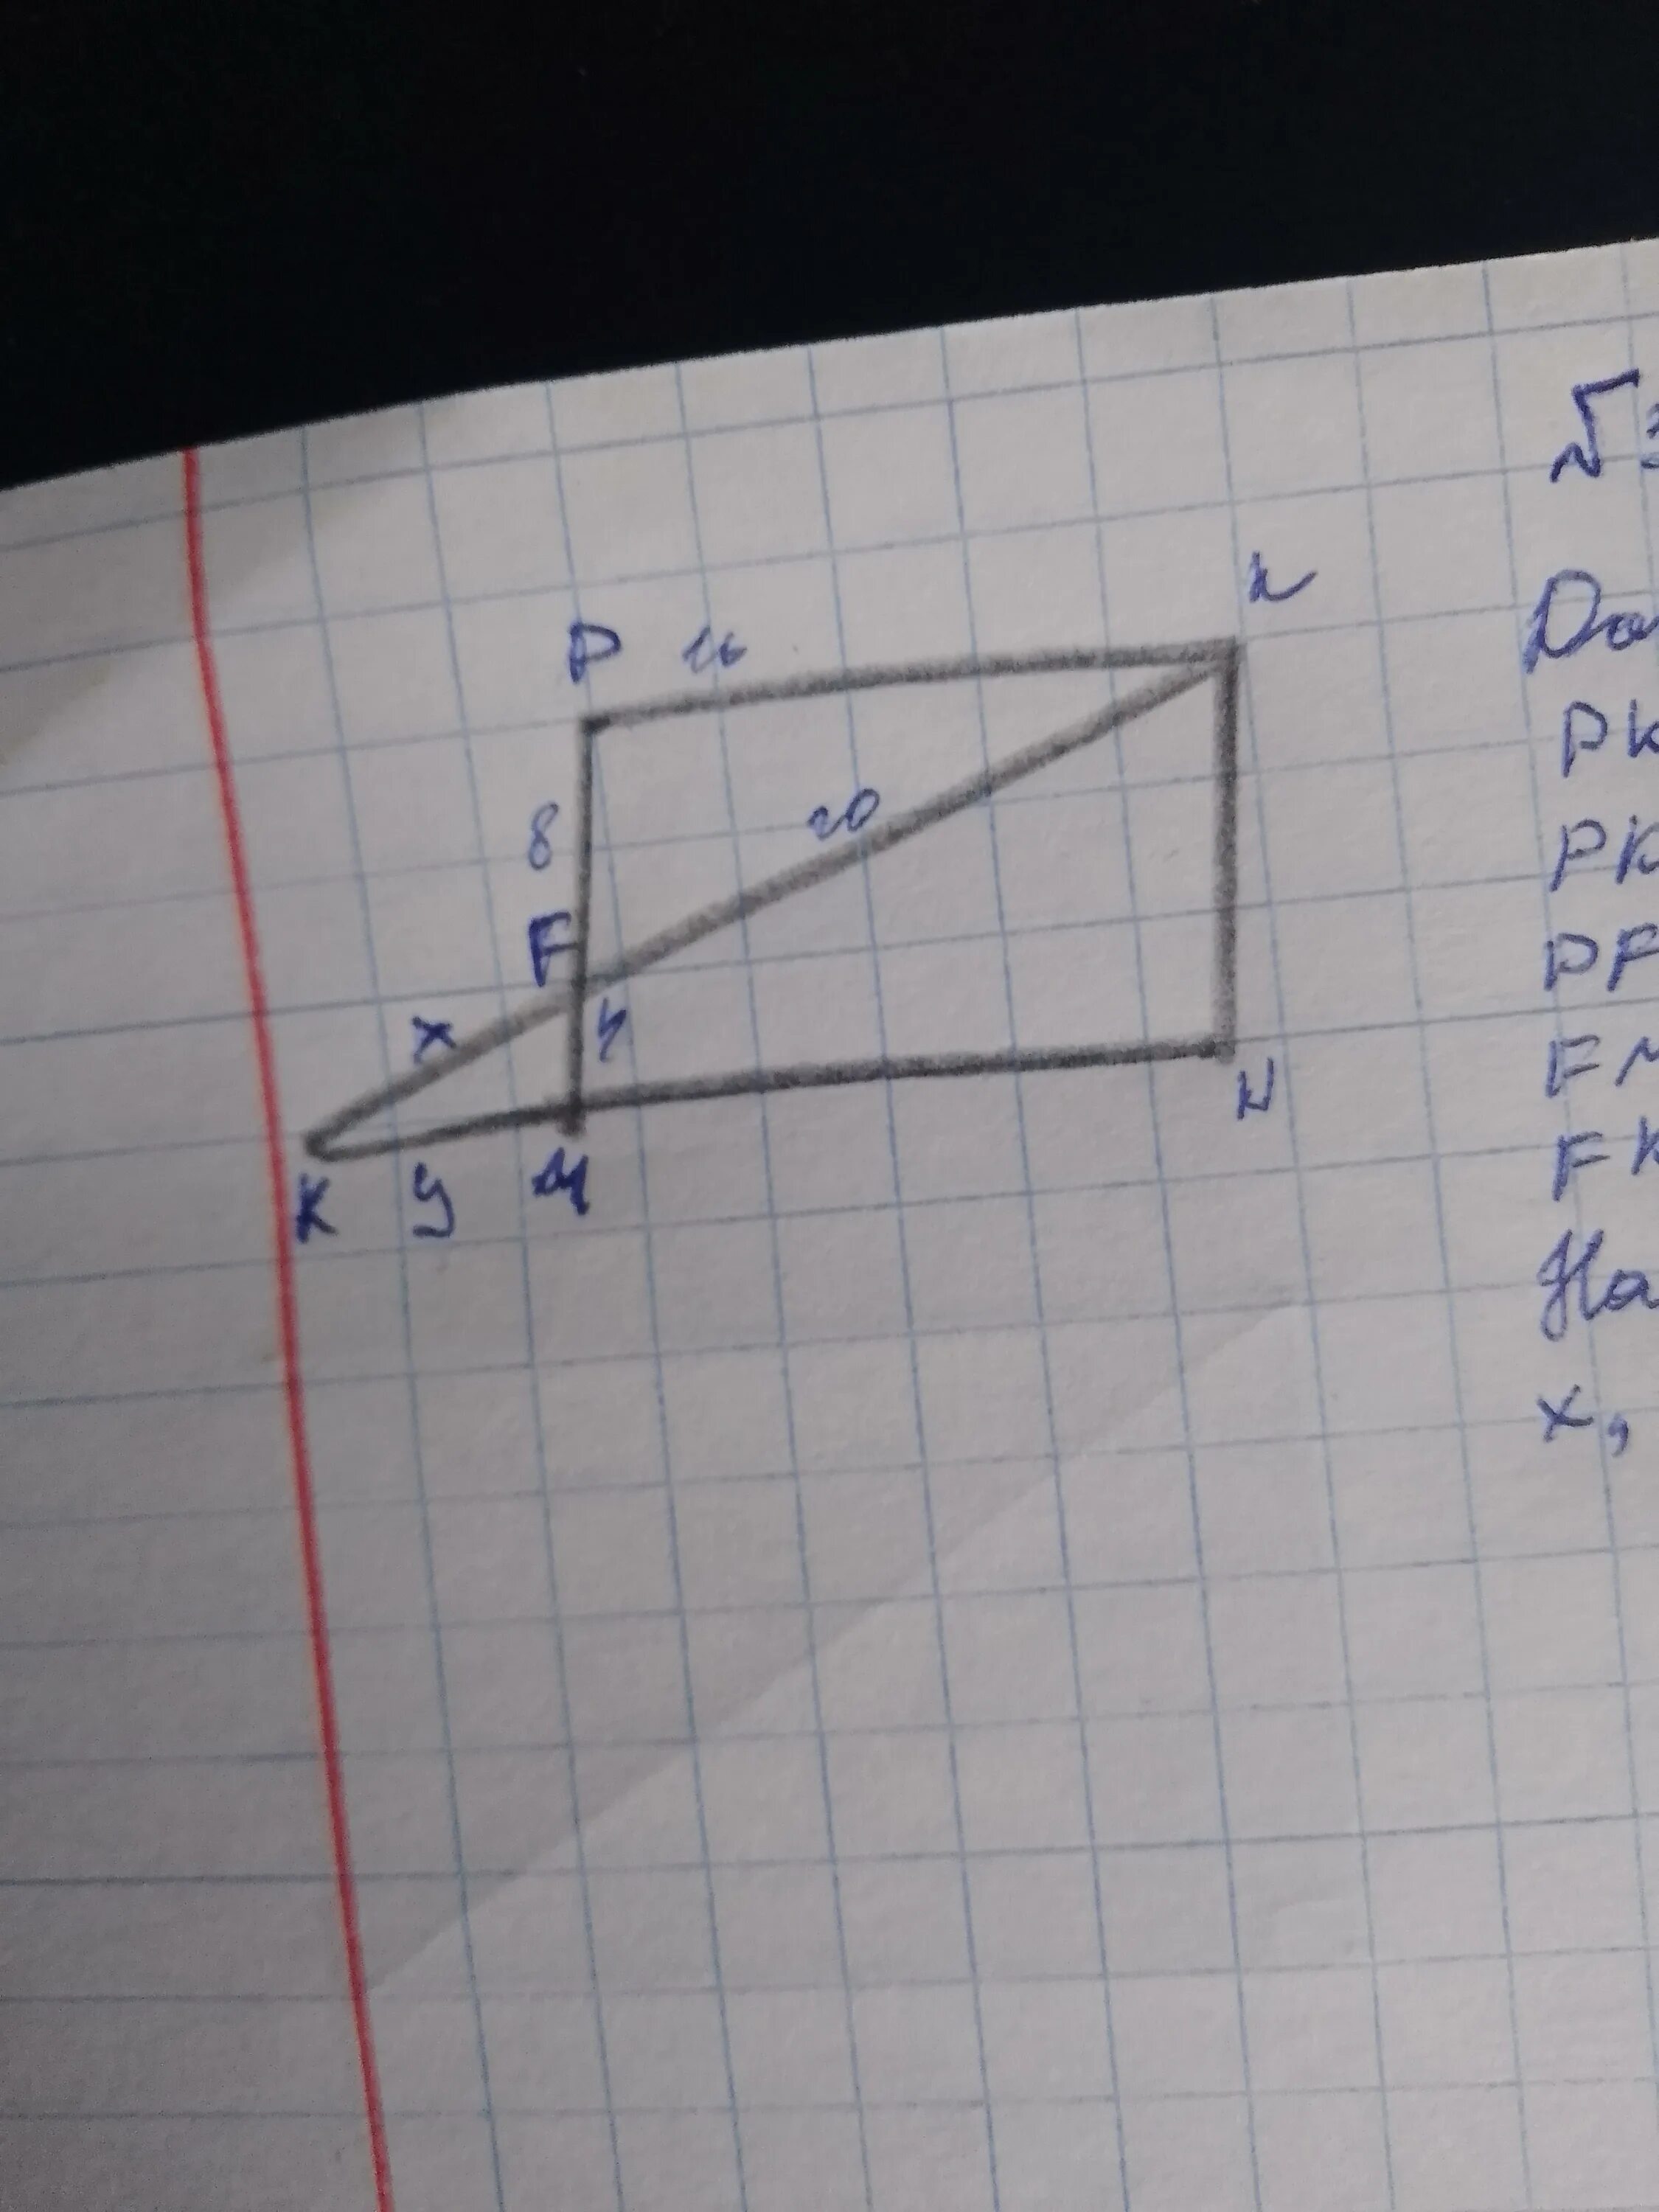 P 16 R
8
20
F
x 4
K y M N
√3
Да
PK
PK
PF
FM
FK
На
x,